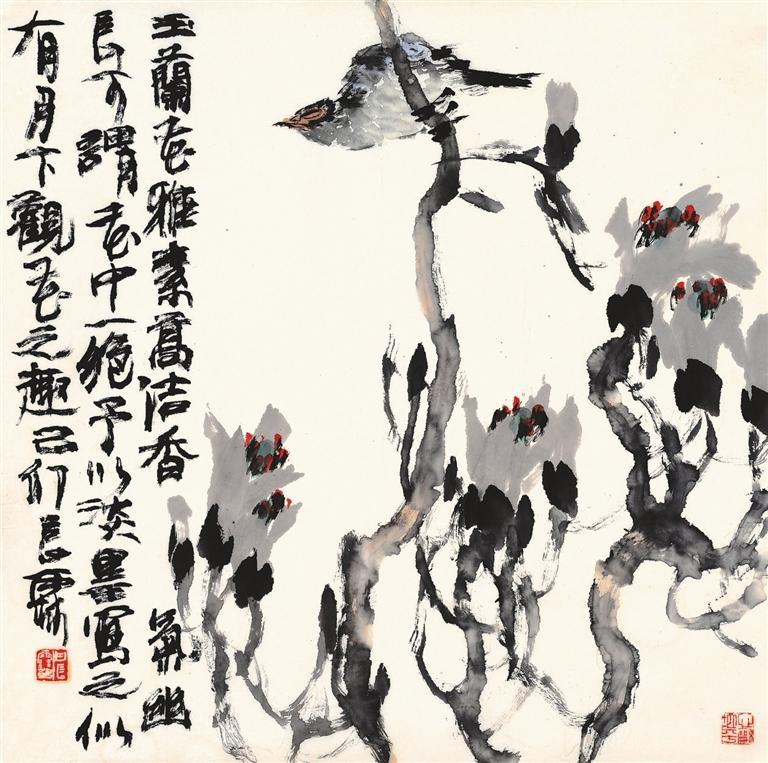 玉蘭花雅素高洁香氣幽
長可謂花中一绝予以淡墨寫之似
有月下觀花之趣